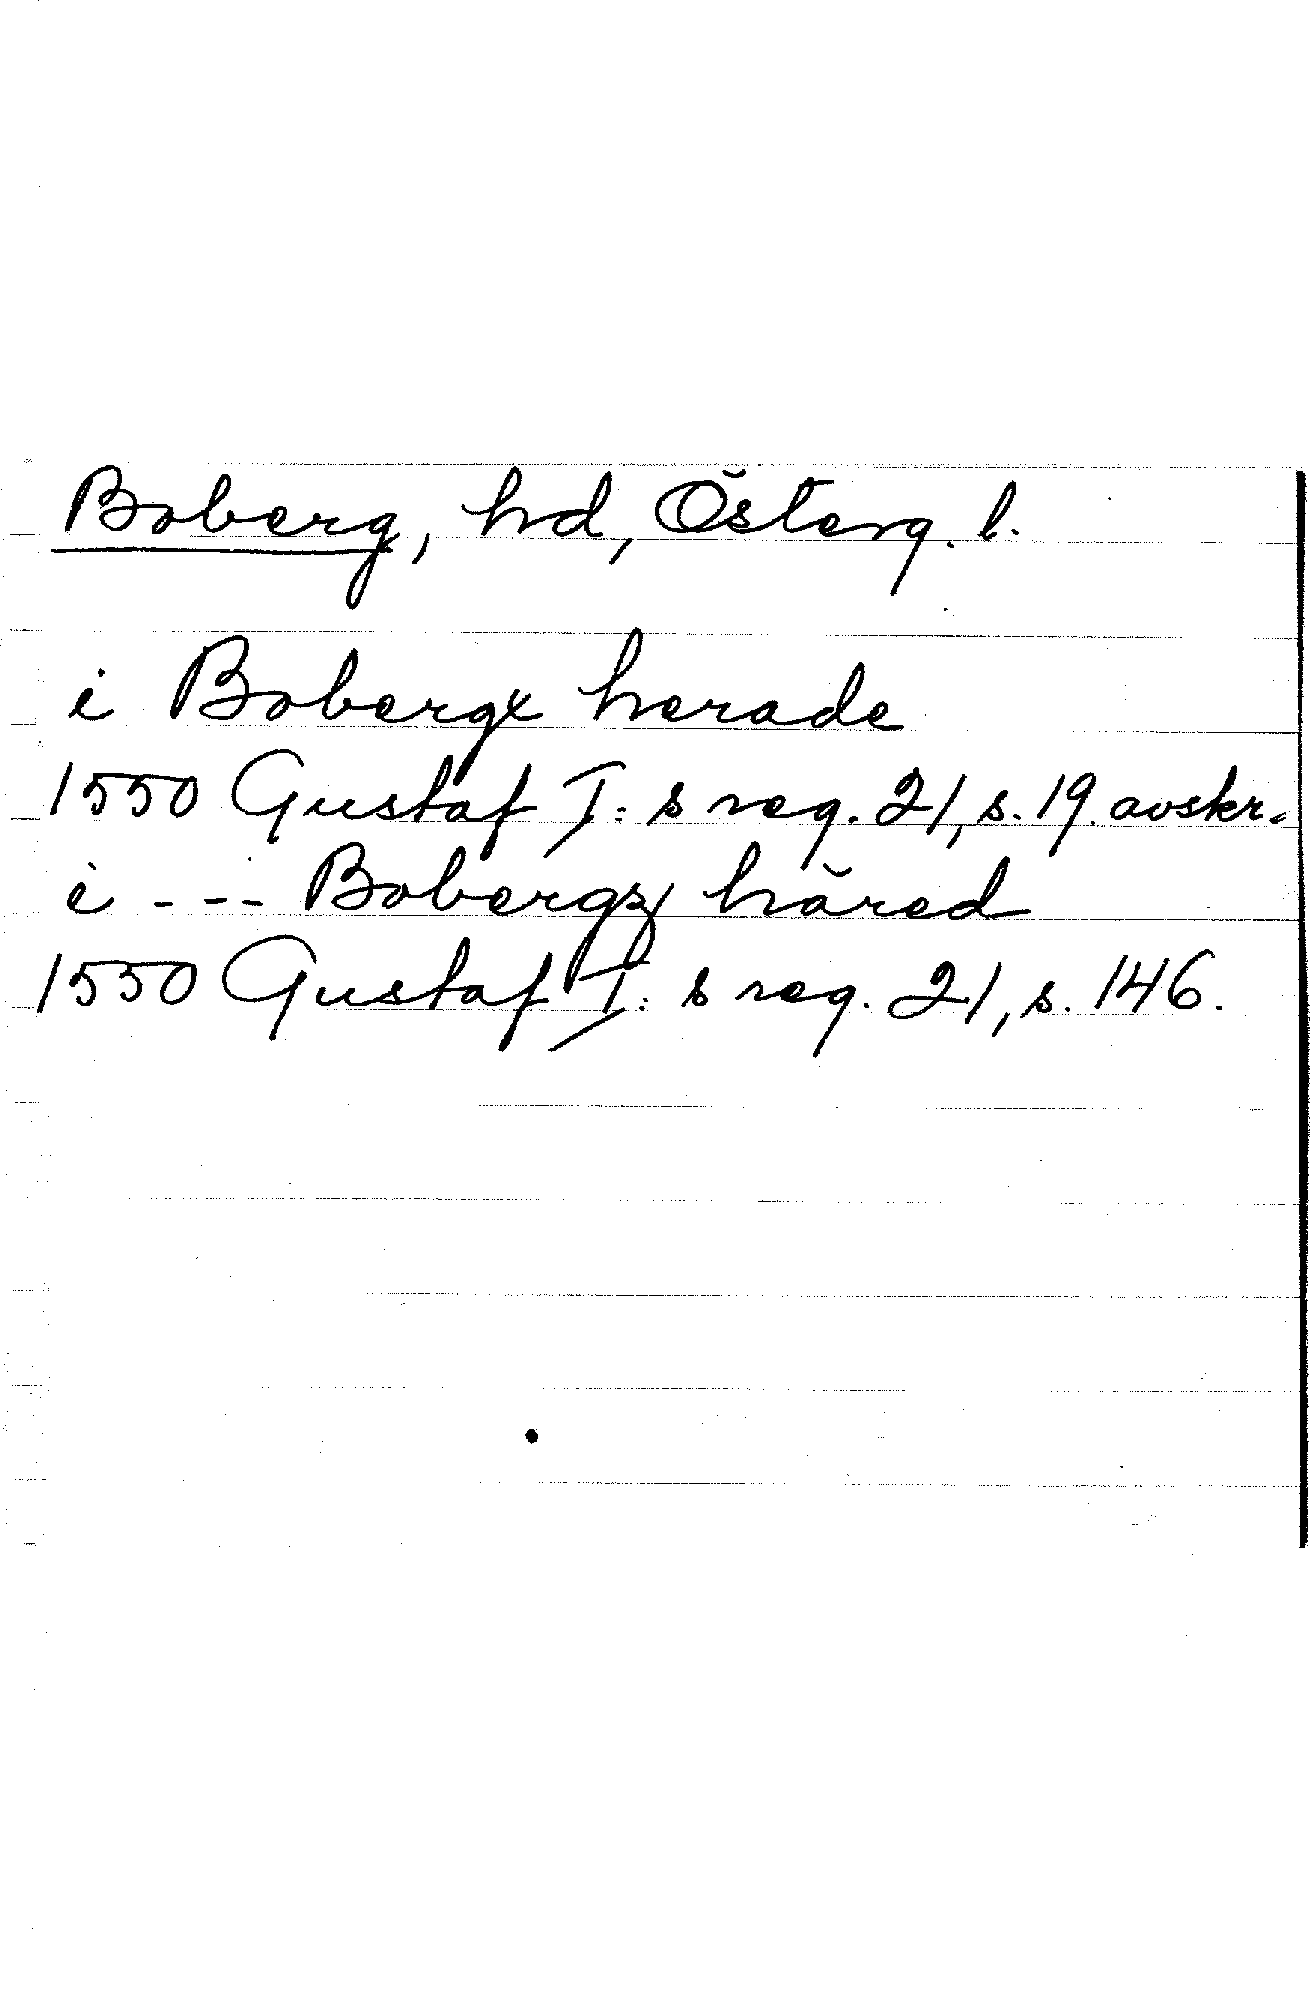 Boberg, hd, Österg. l.
i Bobergx herade
1550 Gustaf I:s reg. 21, s. 19. avskr.
i --- Bobergs häred
1550 Gustaf I:s reg. 21, s. 146.